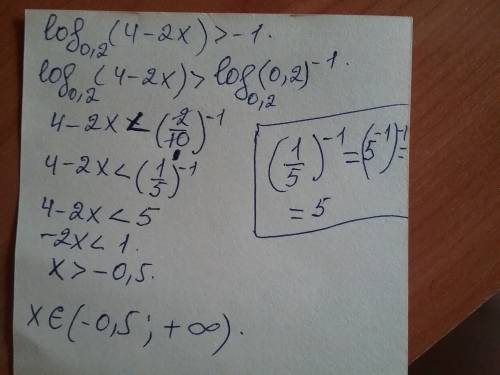 log₀,₂(4-2x)>-1.
log₀,₂(4-2x)>log₀,₂(0,2)⁻¹.
4-2x<(2/10)⁻¹
4-2x<(1/5)⁻¹
4-2x<5
-2x<1.
x>-0,5.
x∈(-0,5; +∞).
(1/5)⁻¹=(5⁻¹)⁻¹=
=5